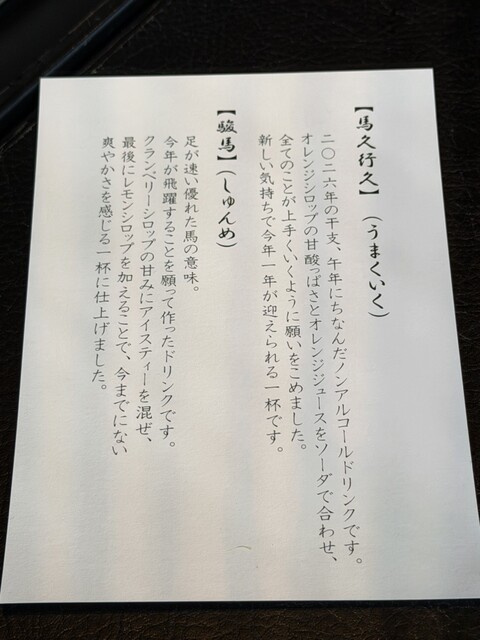 【馬久行久】(うまくいく)
二〇二六年の干支、午年にちなんだノンアルコールドリンクです。
オレンジシロップの甘酸っぱさとオレンジジュースをソーダで合わせ、
全てのことが上手くいくように願いをこめました。
新しい気持ちで今年一年が迎えられる一杯です。
【駿馬】(しゅんめ)
足が速い優れた馬の意味。
今年が飛躍することを願って作ったドリンクです。
クランベリーシロップの甘みにアイスティーを混ぜ、
最後にレモンシロップを加えることで、今までにない
爽やかさを感じる一杯に仕上げました。